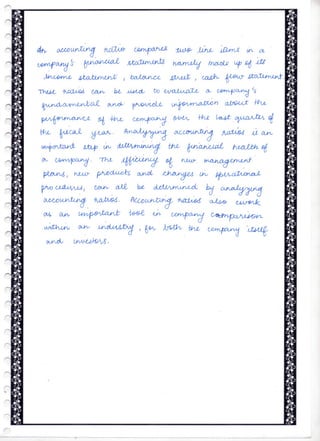 An accounting ratio compares two line items in a
company's financial statements namely made up of its
income statement, balance sheet, cash flow statement.
These ratios can be used to evaluate a company's
fundamental and provide information about the
performance of the company over the last quarter of
the fiscal year. Analyzing accounting ratios is an
important step in determining the financial health of
a company. The efficiency of new management
plans, new products and changes in operational
procedures, can all be determined by analyzing
accounting ratios. Accounting ratios also work
as an important tool in company comparison
within an industry, for both the company itself
and investors.